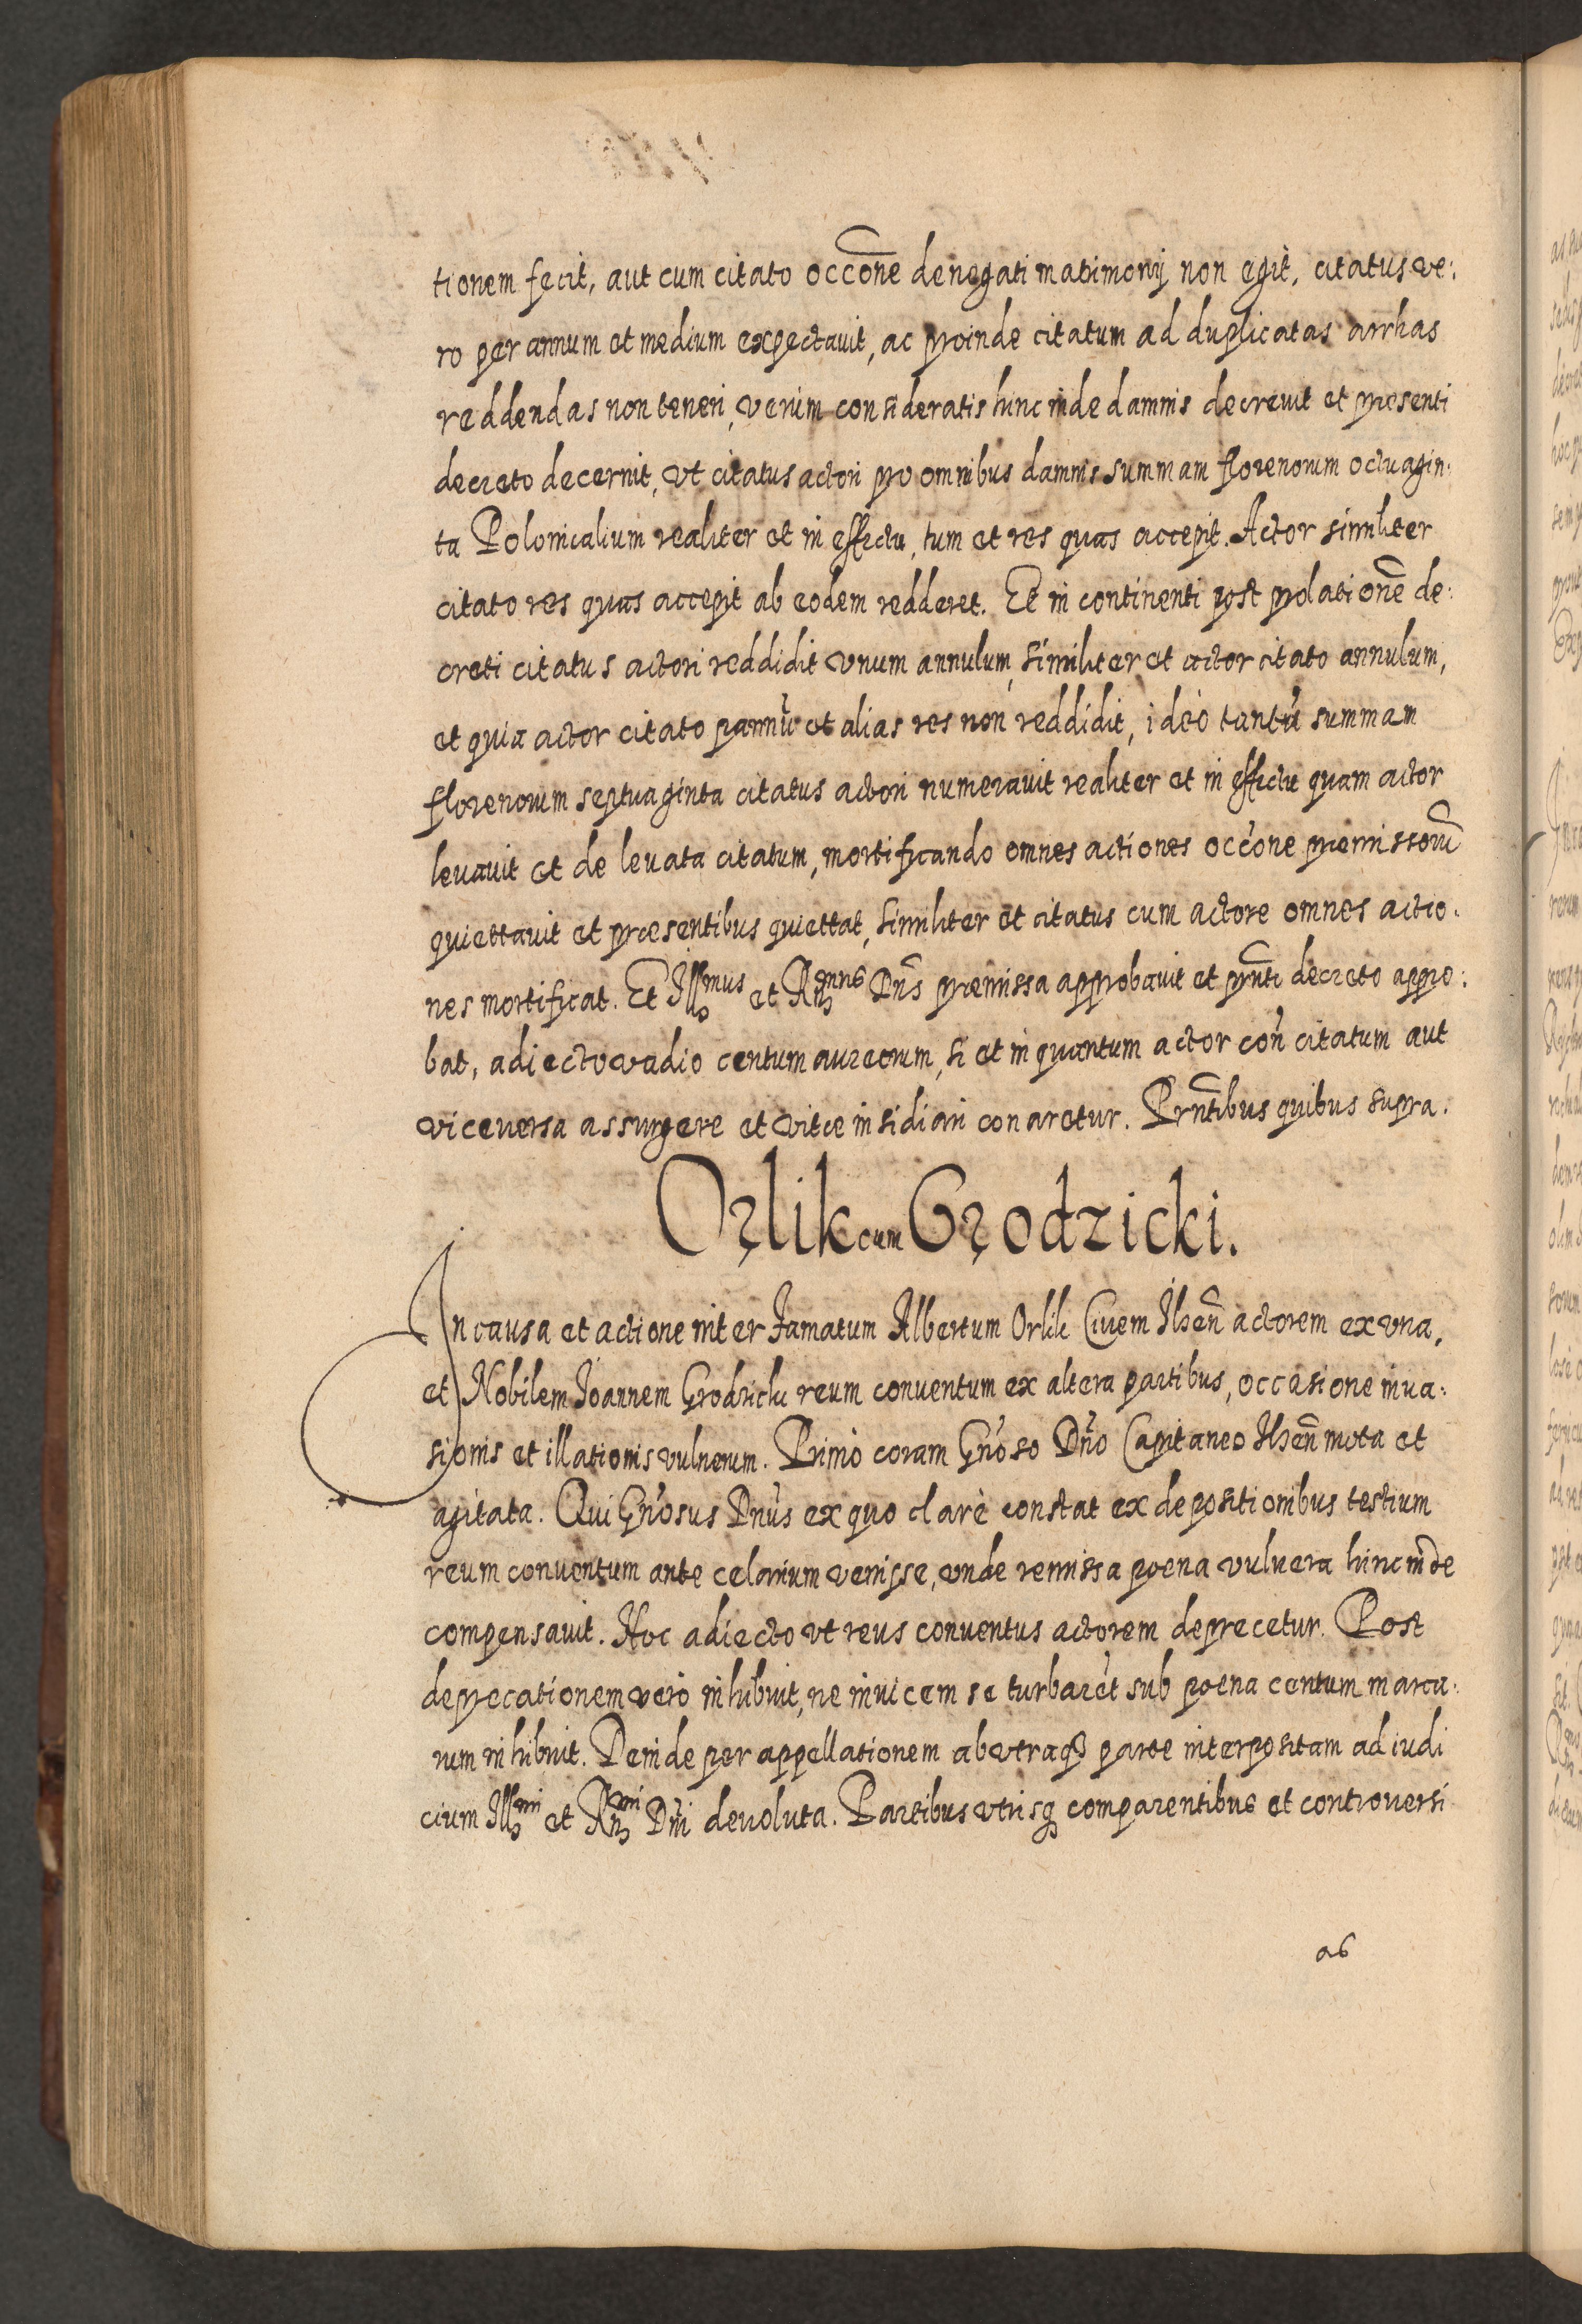 tionem fecit, aut cum citato occõne denegati matimonij non egit, citatus ve:
ro per annum et medium expectavit, ac proinde citatum ad duplicatas arrhas
reddendas non teneri, verùm consideratis hinc inde damnis decrevit et præsenti
decreto decernit, vt citatus actori pro omnibus damnis summam florenorum octuagin:
ta Polonicalium realiter et in effectu, tum et res quas accepit. Actor similiter
citato res quas accepit ab eodem redderet. Et in continenti post prolationẽ de:
creti citatus actori reddidit vnum annulum, similiter et actor citato annulum,
et quia actor citato pannũ et alias res non reddidit, ideò tantũ summam
florenorum septuaginta citatus actori numeravit realiter et in effectu quam actor
levavit et de levata citatum, mortificando omnes actiones occõne præmissorũ
quiettavit et præsentibus quiettat, similiter et citatus cum actore omnes actio:
nes mortificat. Et Illmus et Rndmus Dñs præmissa approbavit et prñti decreto appro:
bat, adiecto vadio centum aureorum, si et in quantum actor coñ citatum aut
viceversa assurgere et vitæ insidiari conaretur. Prñtibus quibus supra.
Orlik cum Grodzicki.
In causa et actione inter famatum Albertum Orlik Civem Ilzeñ actorem ex vna,
et Nobilem Joannem Grodzicki reum conventum ex altera partibus, occasione inva:
sionis et illationis vulnerum. Primò coram Gñoso Dño Capitaneo Ilzeñ mota et
agitata. Qui Gñosus Dñus ex quo clarè constat ex depositionibus testium
reum conventum ante celarium venisse, vnde remissa poena vulnera hinc inde
compensavit. Hoc adiecto vt reus conventus actorem deprecetur. Post
deprecationem verò inhibuit, ne invicem se turbarẽt sub poena centum marca:
rum inhibuit. Deinde per appellationem ab vtraq3 parte interpositam ad iudi
cium Illmi et Rndmi Dñi devoluta. Partibus vtrisq3 comparentibus et controversi
as